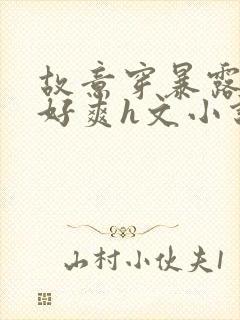 故意穿暴露
好爽h文小
山村小伙夫1